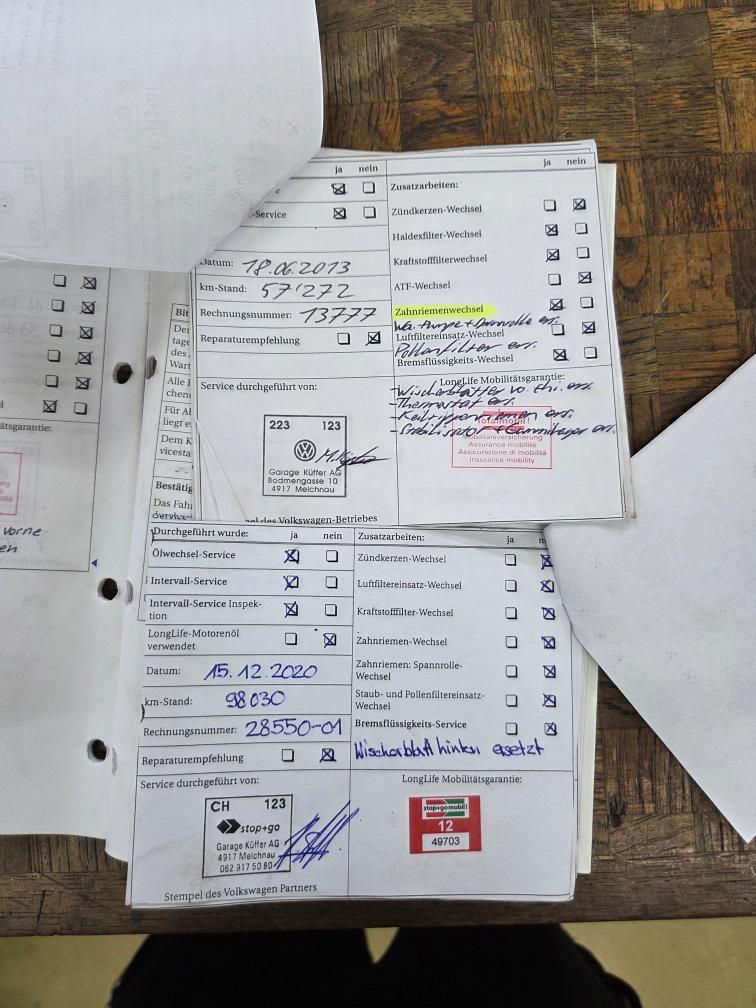 ja nein
-Service
Datum: 18.06.2013
km-Stand: 57'272
Rechnungsnummer: 13777
Reparaturempfehlung
Service durchgeführt von:
223 123
Garage Küffer AG
Bodmengasse 10
4917 Melchnau
des Volkswagen-Betriebes
ja nein
Zusatzarbeiten:
Zündkerzen-Wechsel
Haldexfilter-Wechsel
Kraftstofffilterwechsel
ATF-Wechsel
Zahnriemenwechsel
Wa. Pumpe + Spannrolle ers.
Luftfiltereinsatz-Wechsel
Pollenfilter ers.
Bremsflüssigkeits-Wechsel
LongLife Mobilitätsgarantie:
-Wischerblätter vo. + hi. ers.
-Thermostat ers.
-Keilrippenriemen ers.
-Stabilisator + Gummilager ers.
Totalmobil!
Mobilitätsversicherung
Assurance mobilité
Assicurazione di mobilità
Insurance mobility
Bit
Der
tage
des
Wart
Alle
chen
Für A
liegt e
Dem K
vicesta
Bestätig
Das Fah
ätsgarantie:
vorne
en
Durchgeführt wurde: ja nein
Ölwechsel-Service
Intervall-Service
Intervall-Service Inspek-
tion
LongLife-Motorenöl
verwendet
Datum: 15.12.2020
km-Stand: 98030
Rechnungsnummer: 28550-01
Reparaturempfehlung
Service durchgeführt von:
CH 123
stop+go
Garage Küffer AG
4917 Melchnau
062 917 50 80
Stempel des Volkswagen Partners
Zusatzarbeiten: ja n
Zündkerzen-Wechsel
Luftfiltereinsatz-Wechsel
Kraftstofffilter-Wechsel
Zahnriemen-Wechsel
Zahnriemen: Spannrolle-
Wechsel
Staub- und Pollenfiltereinsatz-
Wechsel
Bremsflüssigkeits-Service
Wischerblatt hinten ersetzt
LongLife Mobilitätsgarantie:
stop+go mobil
12
49703